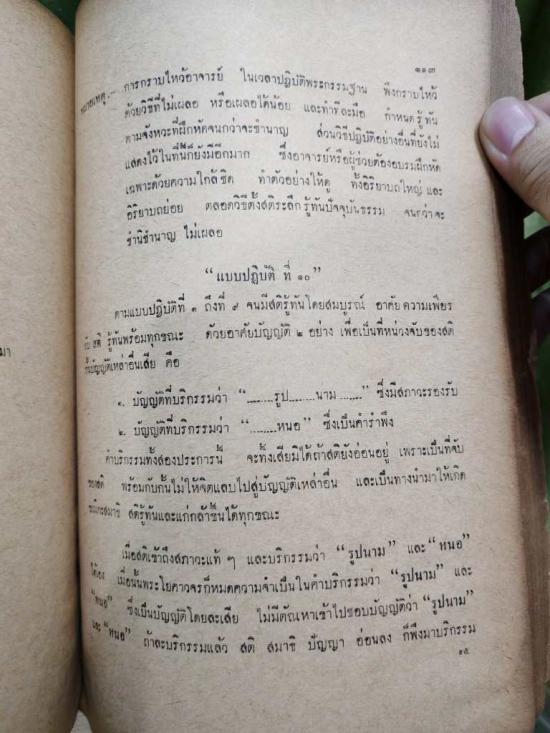 ๑๑๓
หมายเหตุ.— การกราบไหว้อาจารย์ ในเวลาปฏิบัติพระกรรมฐาน พึงกราบไหว้
ด้วยวิธีที่ไม่เผลอ หรือเผลอได้น้อย และทำทีละมือ กำหนดรู้ทัน
ตามจังหวะที่ฝึกหัดจนกว่าจะชำนาญ ส่วนวิธีปฏิบัติอย่างอื่นที่ยังไม่
แสดงไว้ในที่นี้ก็ยังมีอีกมาก ซึ่งอาจารย์หรือผู้ช่วยต้องอบรมฝึกหัด
เฉพาะด้วยความใกล้ชิด ทำตัวอย่างให้ดู ทั้งอิริยาบถใหญ่ และ
อิริยาบถย่อย ตลอดวิธีตั้งสติระลึกรู้ทันปัจจุบันธรรม จนกว่าจะ
ชำนิชำนาญ ไม่เผลอ
“แบบปฏิบัติ ที่ ๑๐”
ตามแบบปฏิบัติที่ ๑ ถึงที่ ๙ จนมีสติรู้ทันโดยสมบูรณ์ อาศัยความเพียร
สติ รู้ทันพร้อมทุกขณะ ด้วยอาศัยบัญญัติ ๒ อย่าง เพื่อเป็นที่หน่วงจับของสติ
บัญญัติเหล่าอื่นเสีย คือ
๑. บัญญัติที่บริกรรมว่า “........รูป........นาม ......” ซึ่งมีสภาวะรองรับ
๒. บัญญัติที่บริกรรมว่า “........หนอ” ซึ่งเป็นคำรำพึง
คำบริกรรมทั้งสองประการนี้ จะทิ้งเสียมิได้ถ้าสติยังอ่อนอยู่ เพราะเป็นที่จับ
ของสติ พร้อมกับกั้นไม่ให้จิตแลบไปสู่บัญญัติเหล่าอื่น และเป็นทางนำมาให้เกิด
ขณิกะสมาธิ สติรู้ทันและแก่กล้าขึ้นได้ทุกขณะ
เมื่อสติเข้าถึงสภาวะแท้ ๆ และบริกรรมว่า “รูปนาม” และ “หนอ”
เมื่อนั้นพระโยคาวจรก็หมดความจำเป็นในคำบริกรรมว่า “รูปนาม” และ
“หนอ” ซึ่งเป็นบัญญัติโดยละเสีย ไม่มีตัณหาเข้าไปชอบบัญญัติว่า “รูปนาม”
และ “หนอ” ถ้าละบริกรรมแล้ว สติ สมาธิ ปัญญา อ่อนลง ก็พึงมาบริกรรม
๑๕
มา